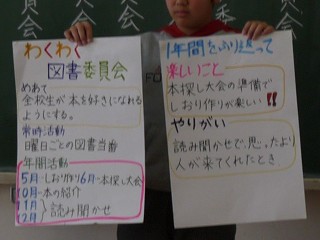 わくわく
図書委員会
めあて
全校生が本を好きになれる
ようにする。
常時活動
曜日ごとの図書当番
年間活動
5月-しおり作り6月-本探し大会
10月-本の紹介
11月
2月 }読み聞かせ
1年間をふり返って
楽しいこと
本探し大会の準備で
しおり作りが楽しい!!
やりがい
読み聞かせで、思ったより
人が来てくれたとき